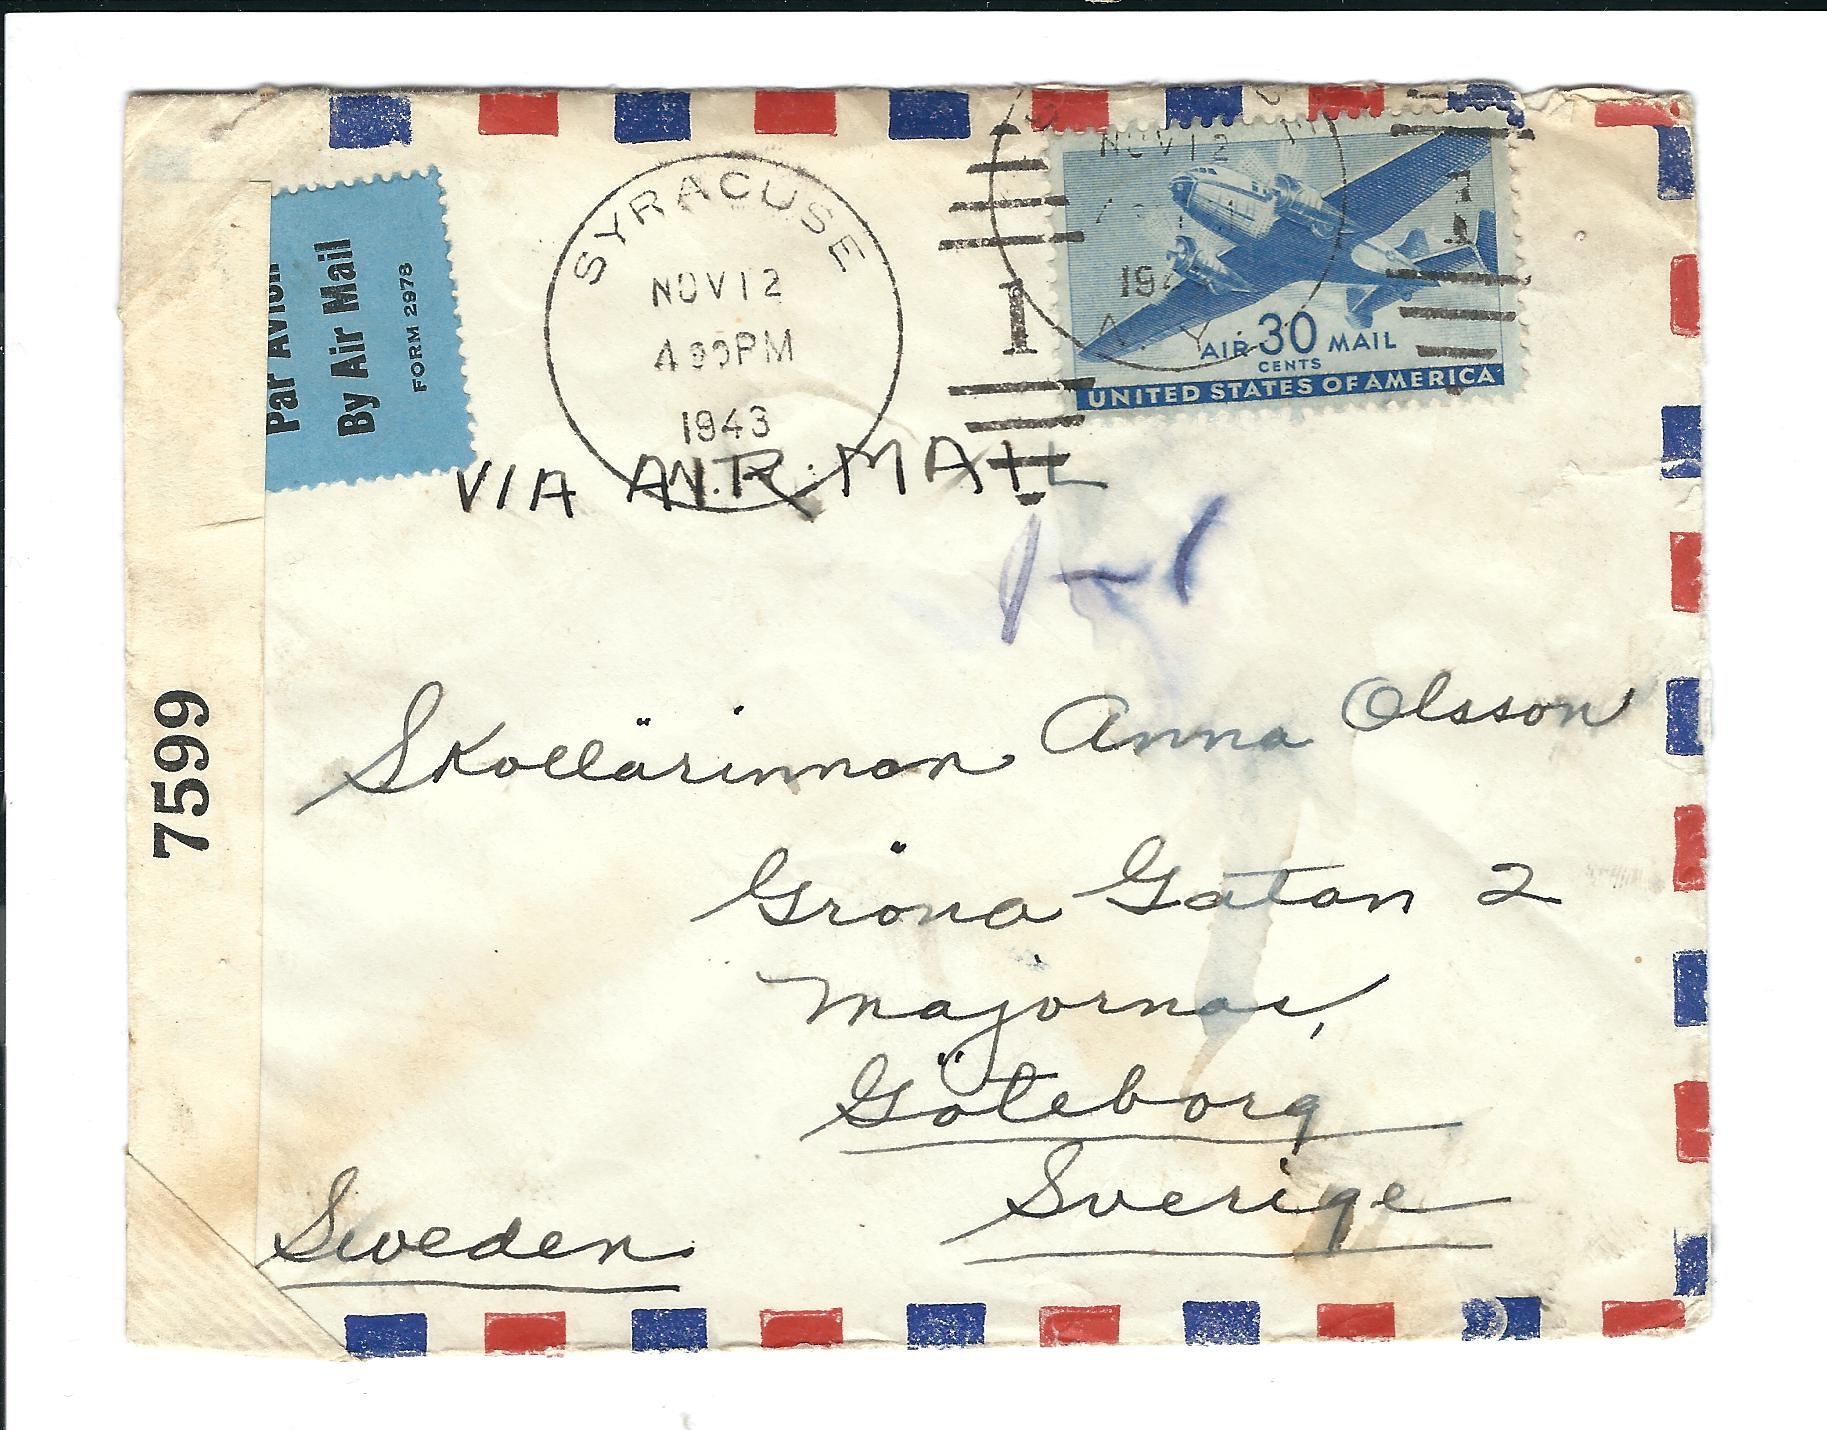 Par Avion
By Air Mail
FORM 2978
SYRACUSE
NOV 12
4 PM
1943
N.Y.
NOV 12
N.Y.
1
1
AIR 30 MAIL
CENTS
UNITED STATES OF AMERICA
VIA AIR MAIL
7599
Skollärinnan Anna Olsson
Gröna Gatan 2
Majorna,
Göteborg
Sverige
Sweden